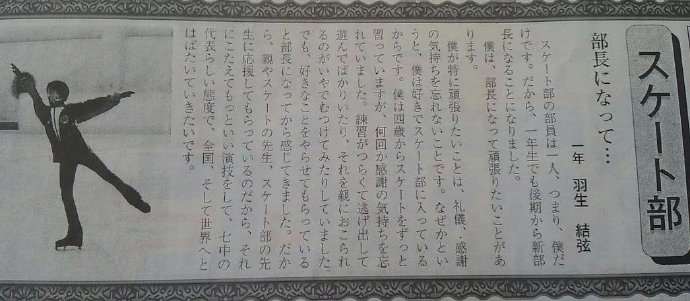 スケート部
部長になって…
一年　羽生　結弦
スケート部の部員は一人、つまり、僕だ
けです。だから、一年生でも後期から新部
長になることになりました。
僕は、部長になって頑張りたいことがあ
ります。
僕が特に頑張りたいことは、礼儀、感謝
の気持ちを忘れないことです。なぜかとい
うと、僕は好きでスケート部に入っている
からです。僕は四歳からスケートをずっと
習っていますが、何回か感謝の気持ちを忘
れていました。練習がつらくて逃げ出して
遊んでばかりいたり、それを親におこられ
るのがいやでむつけてみたりしていました。
でも、好きなことをやらせてもらっている
と部長になってから感じてきました。だか
ら、親やスケートの先生、スケート部の先
生に応援してもらっているのだから、それ
にこたえてもっといい演技をして、七中の
代表らしい態度で、全国、そして世界へと
はばたいていきたいです。